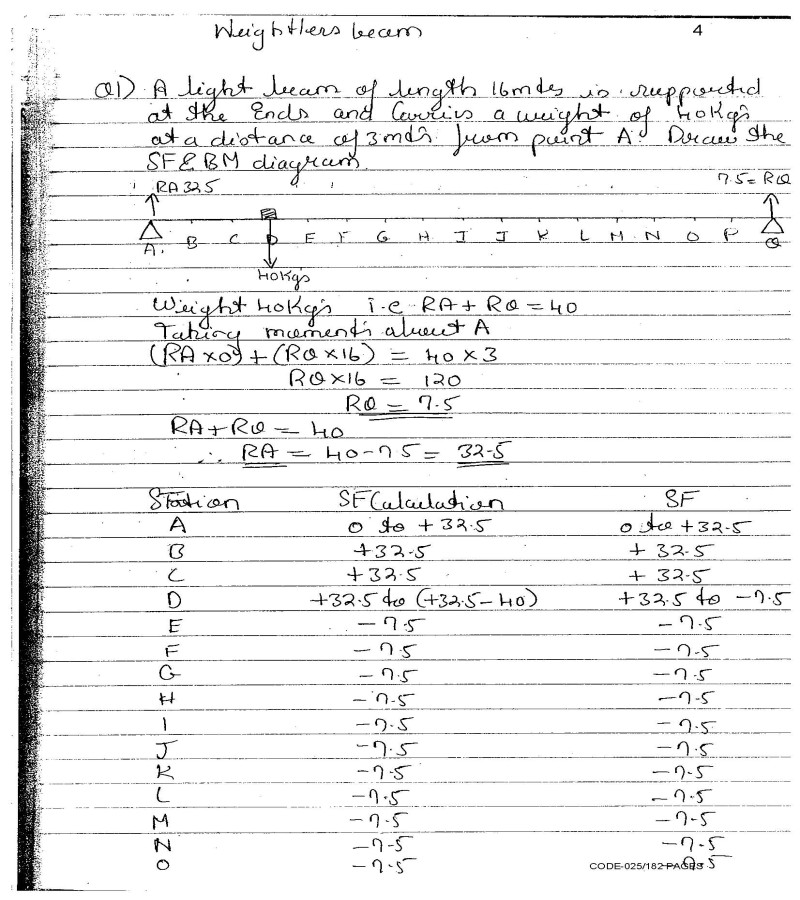 Weightless beam 4
Q1) A light beam of length 16mtrs is supported
at the Ends and Carries a weight of 40Kgs
at a distance of 3mtrs from point A. Draw the
SF & BM diagram.
RA 32.5 7.5 = RQ
A. B C D E F G H I J K L M N O P Q
40Kgs
Weight 40Kgs i.e RA + RQ = 40
Taking moments about A
(RA x 0) + (RQ x 16) = 40 x 3
RQ x 16 = 120
RQ = 7.5
RA + RQ = 40
∴ RA = 40 - 7.5 = 32.5
Station SF Calculation SF
A 0 to + 32.5 0 to + 32.5
B +32.5 + 32.5
C +32.5 + 32.5
D +32.5 to (+32.5 - 40) +32.5 to -7.5
E -7.5 -7.5
F -7.5 -7.5
G -7.5 -7.5
H -7.5 -7.5
I -7.5 -7.5
J -7.5 -7.5
K -7.5 -7.5
L -7.5 -7.5
M -7.5 -7.5
N -7.5 -7.5
O -7.5 -7.5
CODE-025/182 PAGES